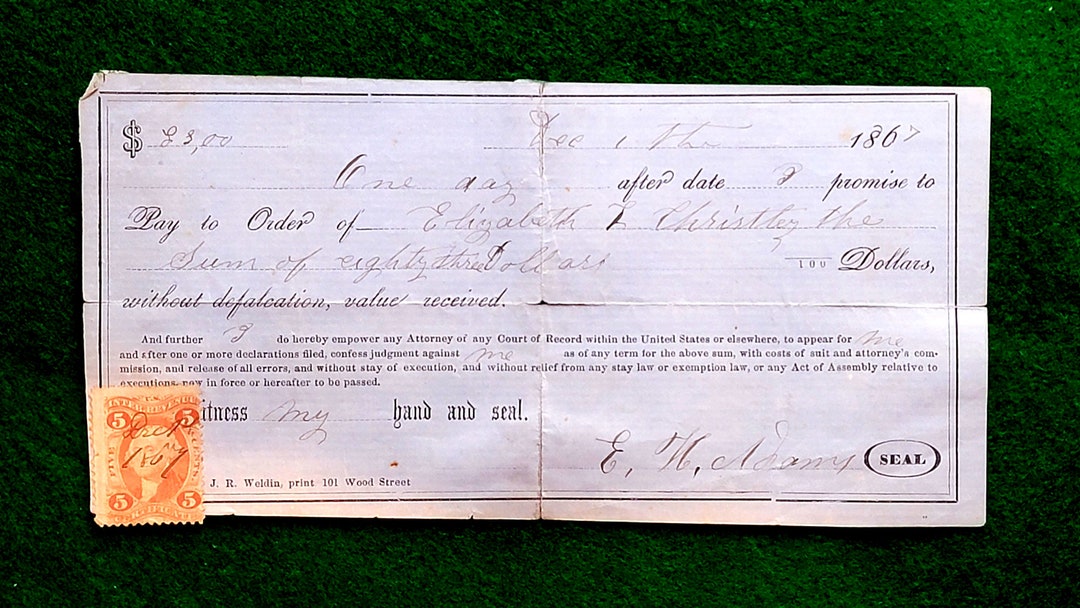 $ 83,00 Dec 1 the 1867
One day after date I promise to
Pay to Order of Elizabeth Christley the
Sum of eighty three Dollars 100 Dollars,
without defalcation, value received.
And further I do hereby empower any Attorney of any Court of Record within the United States or elsewhere, to appear for me
and after one or more declarations filed, confess judgment against me as of any term for the above sum, with costs of suit and attorney's com-
mission, and release of all errors, and without stay of execution, and without relief from any stay law or exemption law, or any Act of Assembly relative to
executions, now in force or hereafter to be passed.
itness my hand and seal.
E. H. Adams SEAL
J. R. Weldin, print 101 Wood Street
U.S.
INTER. REVENUE
5 5
FIVE CENTS
1867
5 5